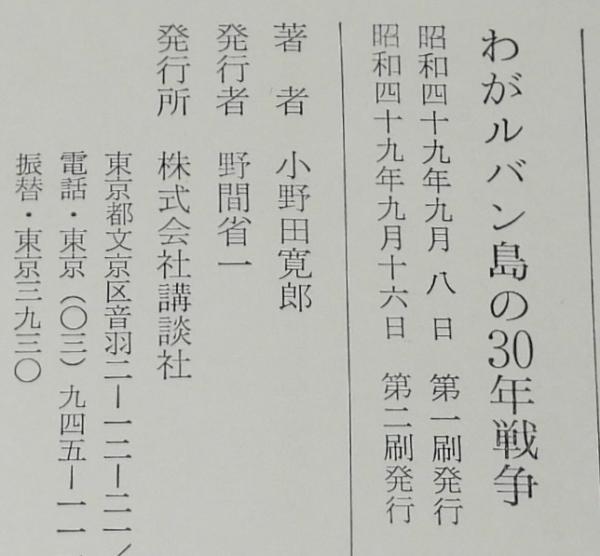 わがルバン島の30年戦争
昭和四十九年九月 八 日 第一刷発行
昭和四十九年九月十六日 第二刷発行
著 者 小野田寛郎
発行者 野間省一
発行所 株式会社講談社
東京都文京区音羽二―一二―二一/
電話・東京(〇三)九四五―一一
振替・東京三九三〇